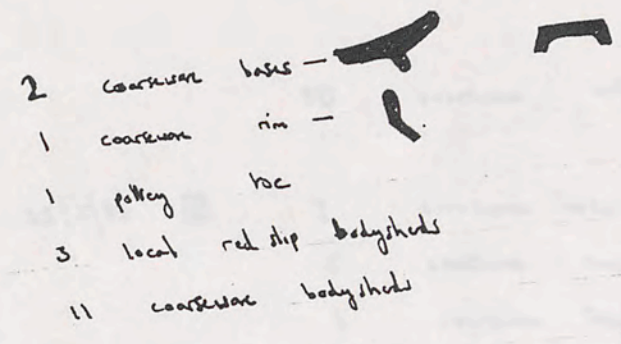 2 coarseware bases —
1 coarseware rim —
1 pottery toc
3 local red slip bodysherds
11 coarseware bodysherds